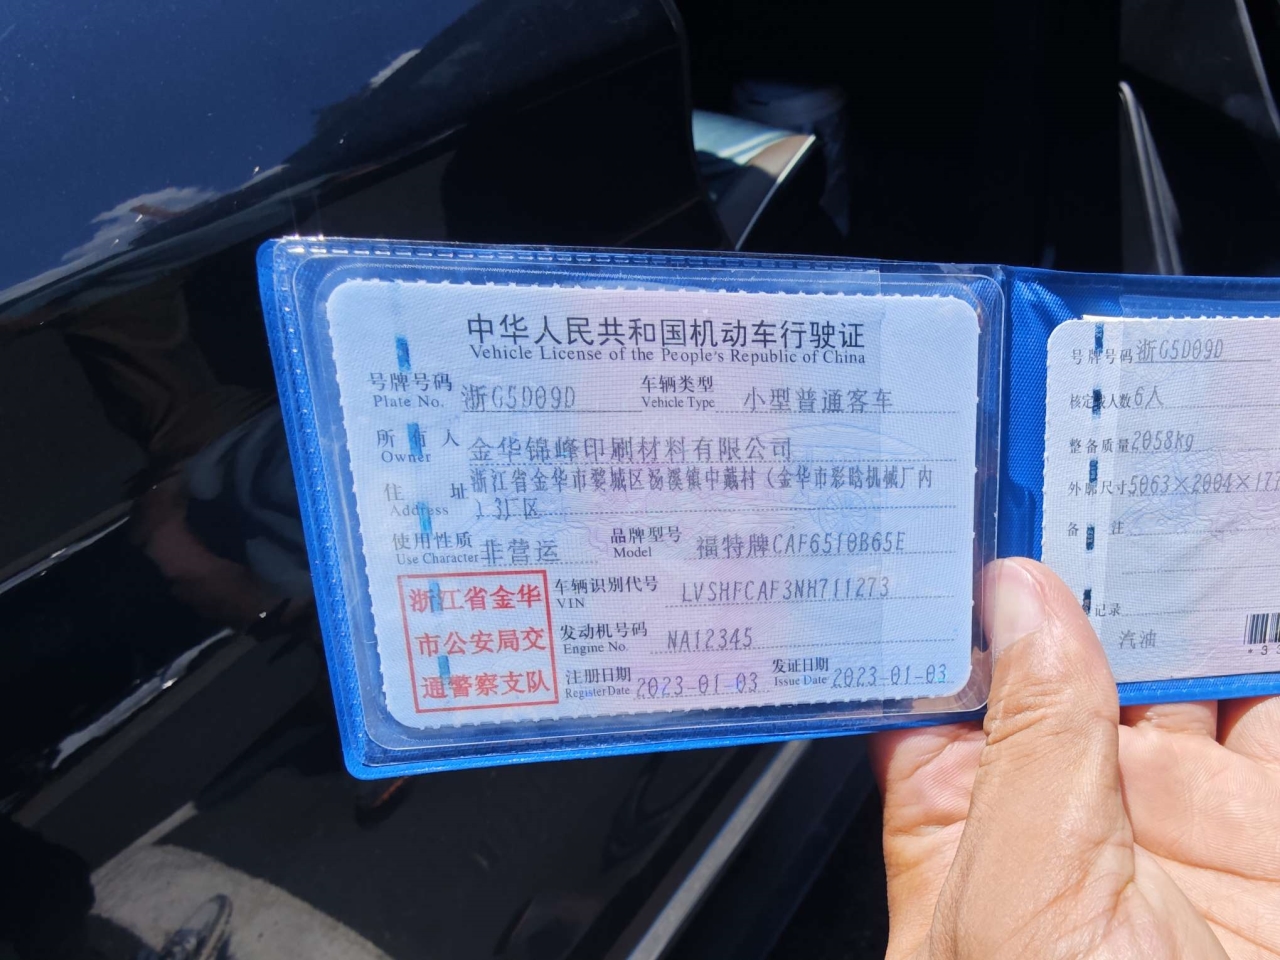 中华人民共和国机动车行驶证
Vehicle License of the People's Republic of China
号牌号码 浙G5D09D 车辆类型 小型普通客车
Plate No. Vehicle Type
所有人 金华锦峰印刷材料有限公司
Owner
住址 浙江省金华市婺城区汤溪镇中戴村（金华市彩晗机械厂内
Address 1.3厂区
使用性质 非营运 品牌型号 福特牌CAF6510B65E
Use Character Model
浙江省金华
市公安局交
通警察支队
车辆识别代号 LVSHFCAF3NH711273
VIN
发动机号码 NA12345
Engine No.
注册日期 2023-01-03 发证日期 2023-01-03
Register Date Issue Date
号牌号码 浙G5D09D
核定载人数 6人
整备质量 2058kg
外廓尺寸 5063×2004×177
备注
记录
汽油
*33